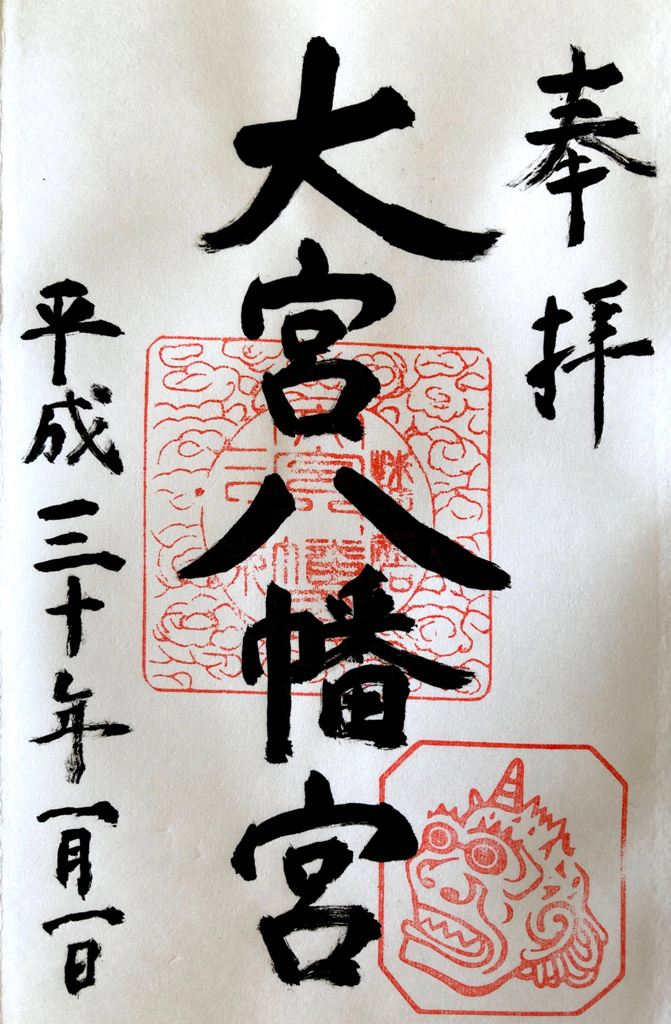 奉拝
大宮八幡宮
平成三十年一月一日